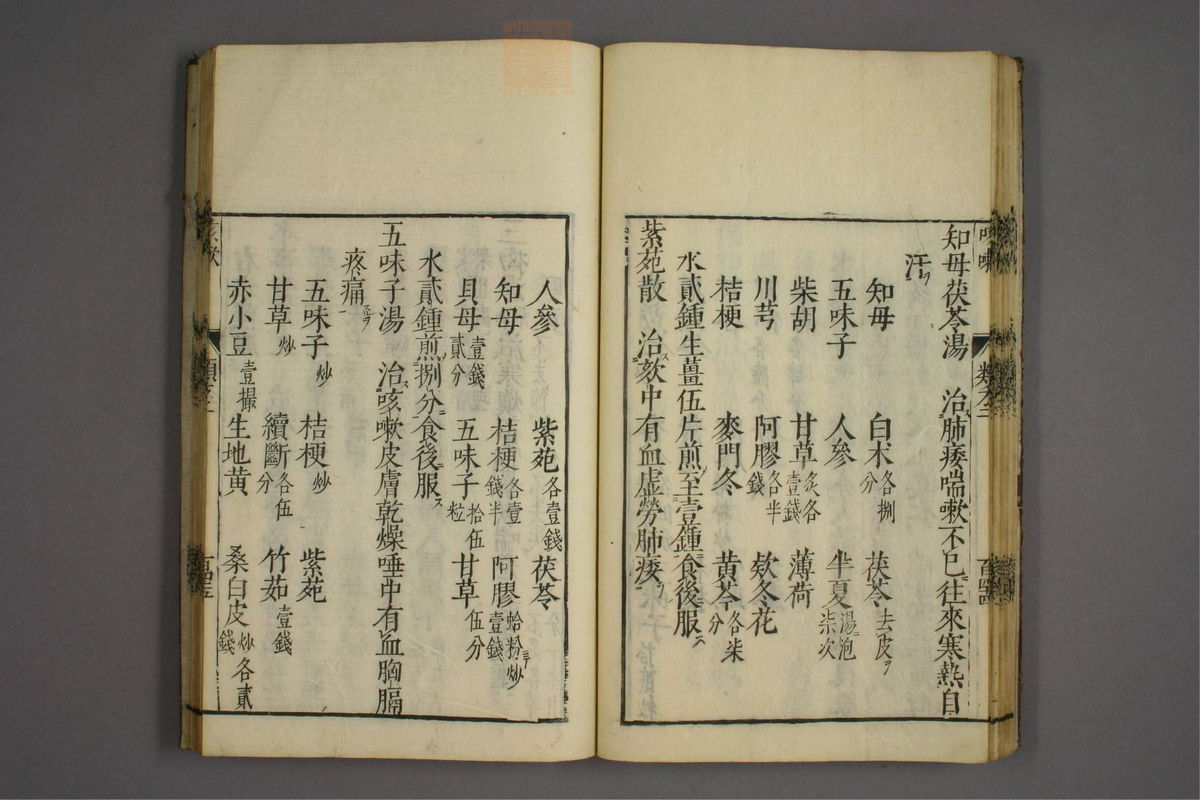 知母茯苓湯　治肺痿喘嗽不已往來寒熱自
汗ヲ
知母　白朮各捌分　茯苓去皮ヲ
五味子　人參　半夏湯泡柒次
柴胡　甘草炙各壹錢　薄荷
川芎　阿膠各半錢　欵冬花
桔梗　麥門冬　黄芩各柒分
水貳鍾生薑伍片煎至壹鍾食後服
紫苑散　治欬中有血虛勞肺痿
人參　紫苑各壹錢　茯苓
知母　桔梗各壹錢半　阿膠蛤粉炒壹錢
貝母壹錢貳分　五味子拾伍粒　甘草伍分
水貳鍾煎捌分食後服
五味子湯　治咳嗽皮膚乾燥唾中有血胸膈
疼痛
五味子炒　桔梗炒　紫苑
甘草炒　續斷各伍分　竹茹壹錢
赤小豆壹撮　生地黄　桑白皮炒各貳錢